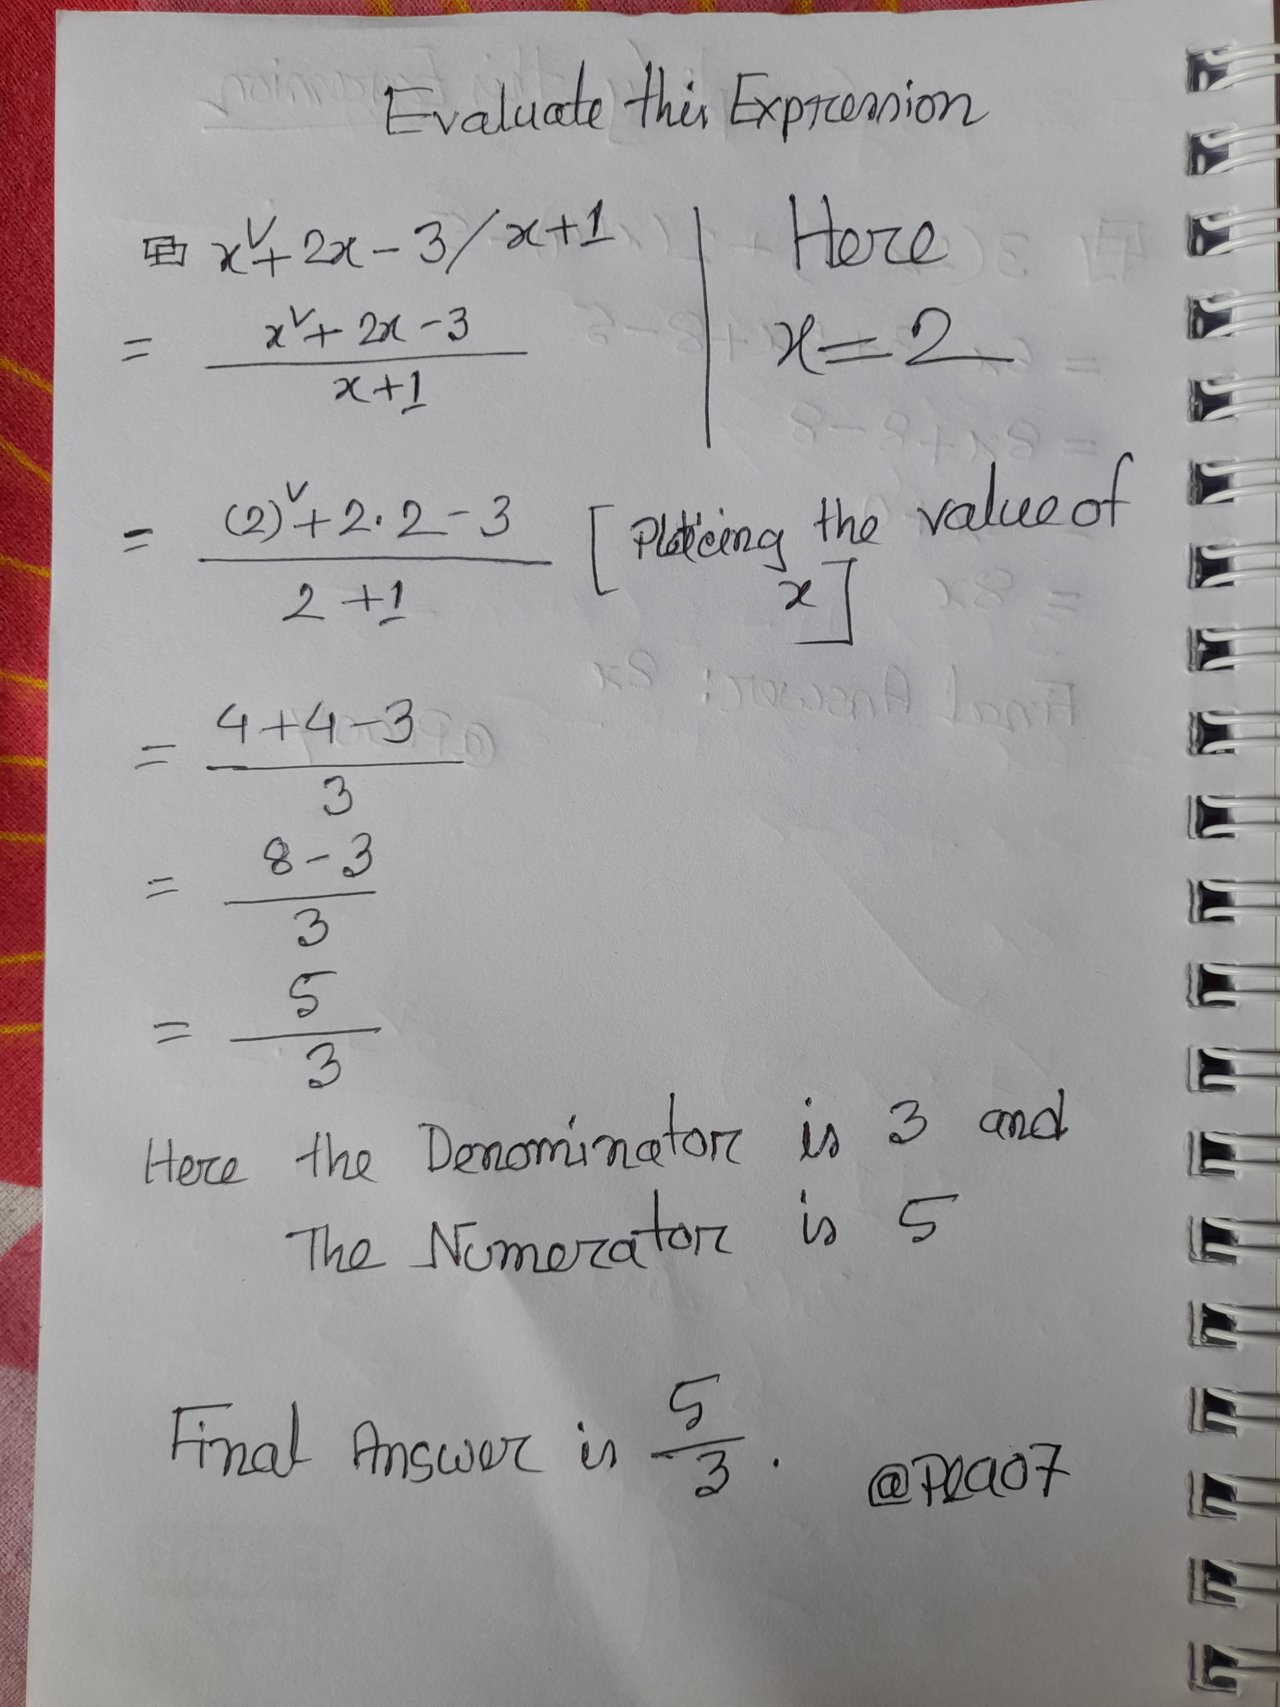 Evaluate this Expression
x² + 2x - 3 / x + 1
Here
x = 2
= x² + 2x - 3
x + 1
= (2)² + 2 · 2 - 3
2 + 1
[Placing the value of
x]
= 4 + 4 - 3
3
= 8 - 3
3
= 5
3
Here the Denominator is 3 and
The Numerator is 5
Final Answer is 5/3 .
@PLa07